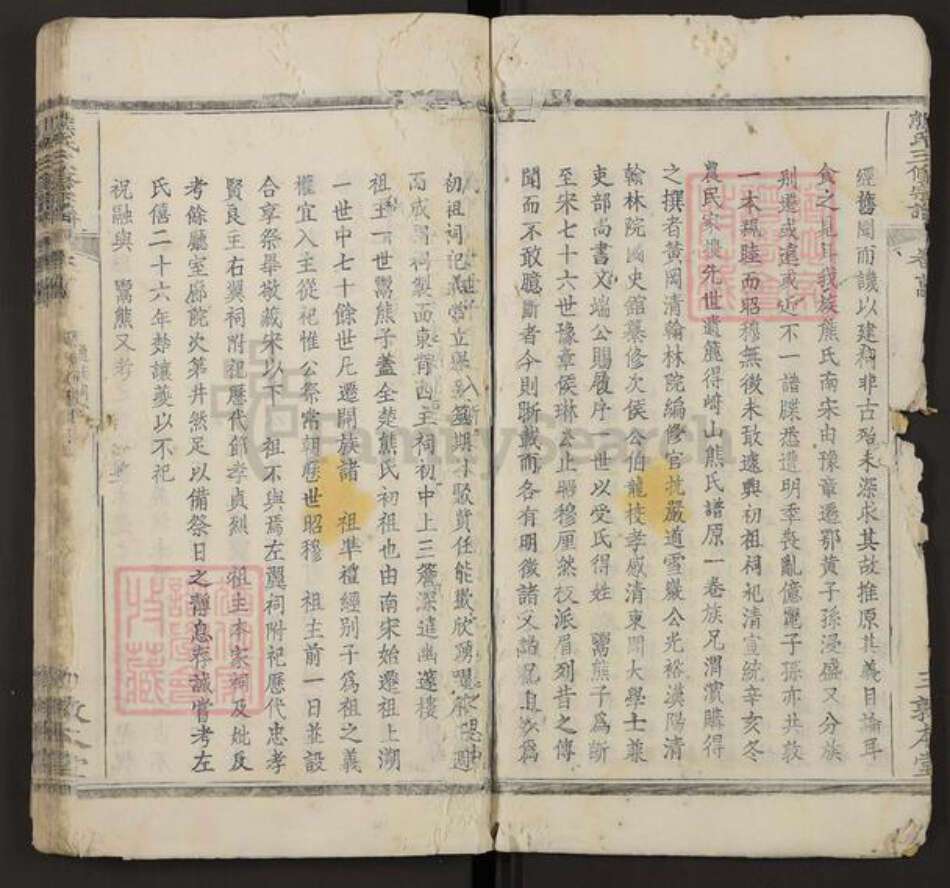 熊氏三修宗譜
三 敦本堂
經舊聞而譏以建 非古殆未深求其故推原其義目論耳
食之見耳我族熊氏南宋由豫章遷鄂黃子孫浸盛又分族
別遷或遠或近不一譜牒悉遭明季喪亂億麗子孫亦共敦
一本親睦而昭穆無徵未敢遽興初祖祠祀清宣統辛亥冬
農民家搜先世遺篋得崎山熊氏譜原一卷族兄渭濱購得
之撰者黃岡清翰林院編修官抗嚴道雪巖公光裕漢陽清
翰林院國史館纂修次侯 公伯龍校孝感清東閣大學士兼
吏部尚書文端公賜履序 一世以受氏得姓 鬻熊子為斷
至宋七十六世豫章侯琳公止昭穆厘然枝派眉列昔之傳
聞而不敢臆斷者今則晰載而各有明徵諸父詣 為
初祖祠祀義當立舉 期 踴躍
而成 祠製西東 西主祠初中上三 深遠幽邃樓
祖主一世鬻熊子蓋全楚熊氏初祖也由南宋始遷祖上溯
一世中七十餘世凡遷開族諸 祖準禮經別子為祖之義
權宜入主從祀惟公祭常朝歷世昭穆 祖主前一日並設
合享祭舉敬藏宋以下 祖不與焉左翼祠附祀歷代忠孝
賢良主右翼祠附祀歷代節孝貞烈 祖主本家祠及妣及
考餘廳室廊院次第井然足以備祭日之齊息存誠嘗考左
氏僖二十六年楚讓夔以不祀
祝融與 鬻熊又考
熊氏三修宗譜
敦本堂